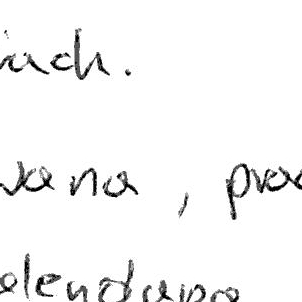 iach.
wana, prac
alendarza